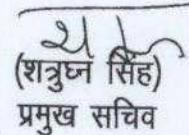 (शत्रुघ्न सिंह)
प्रमुख सचिव